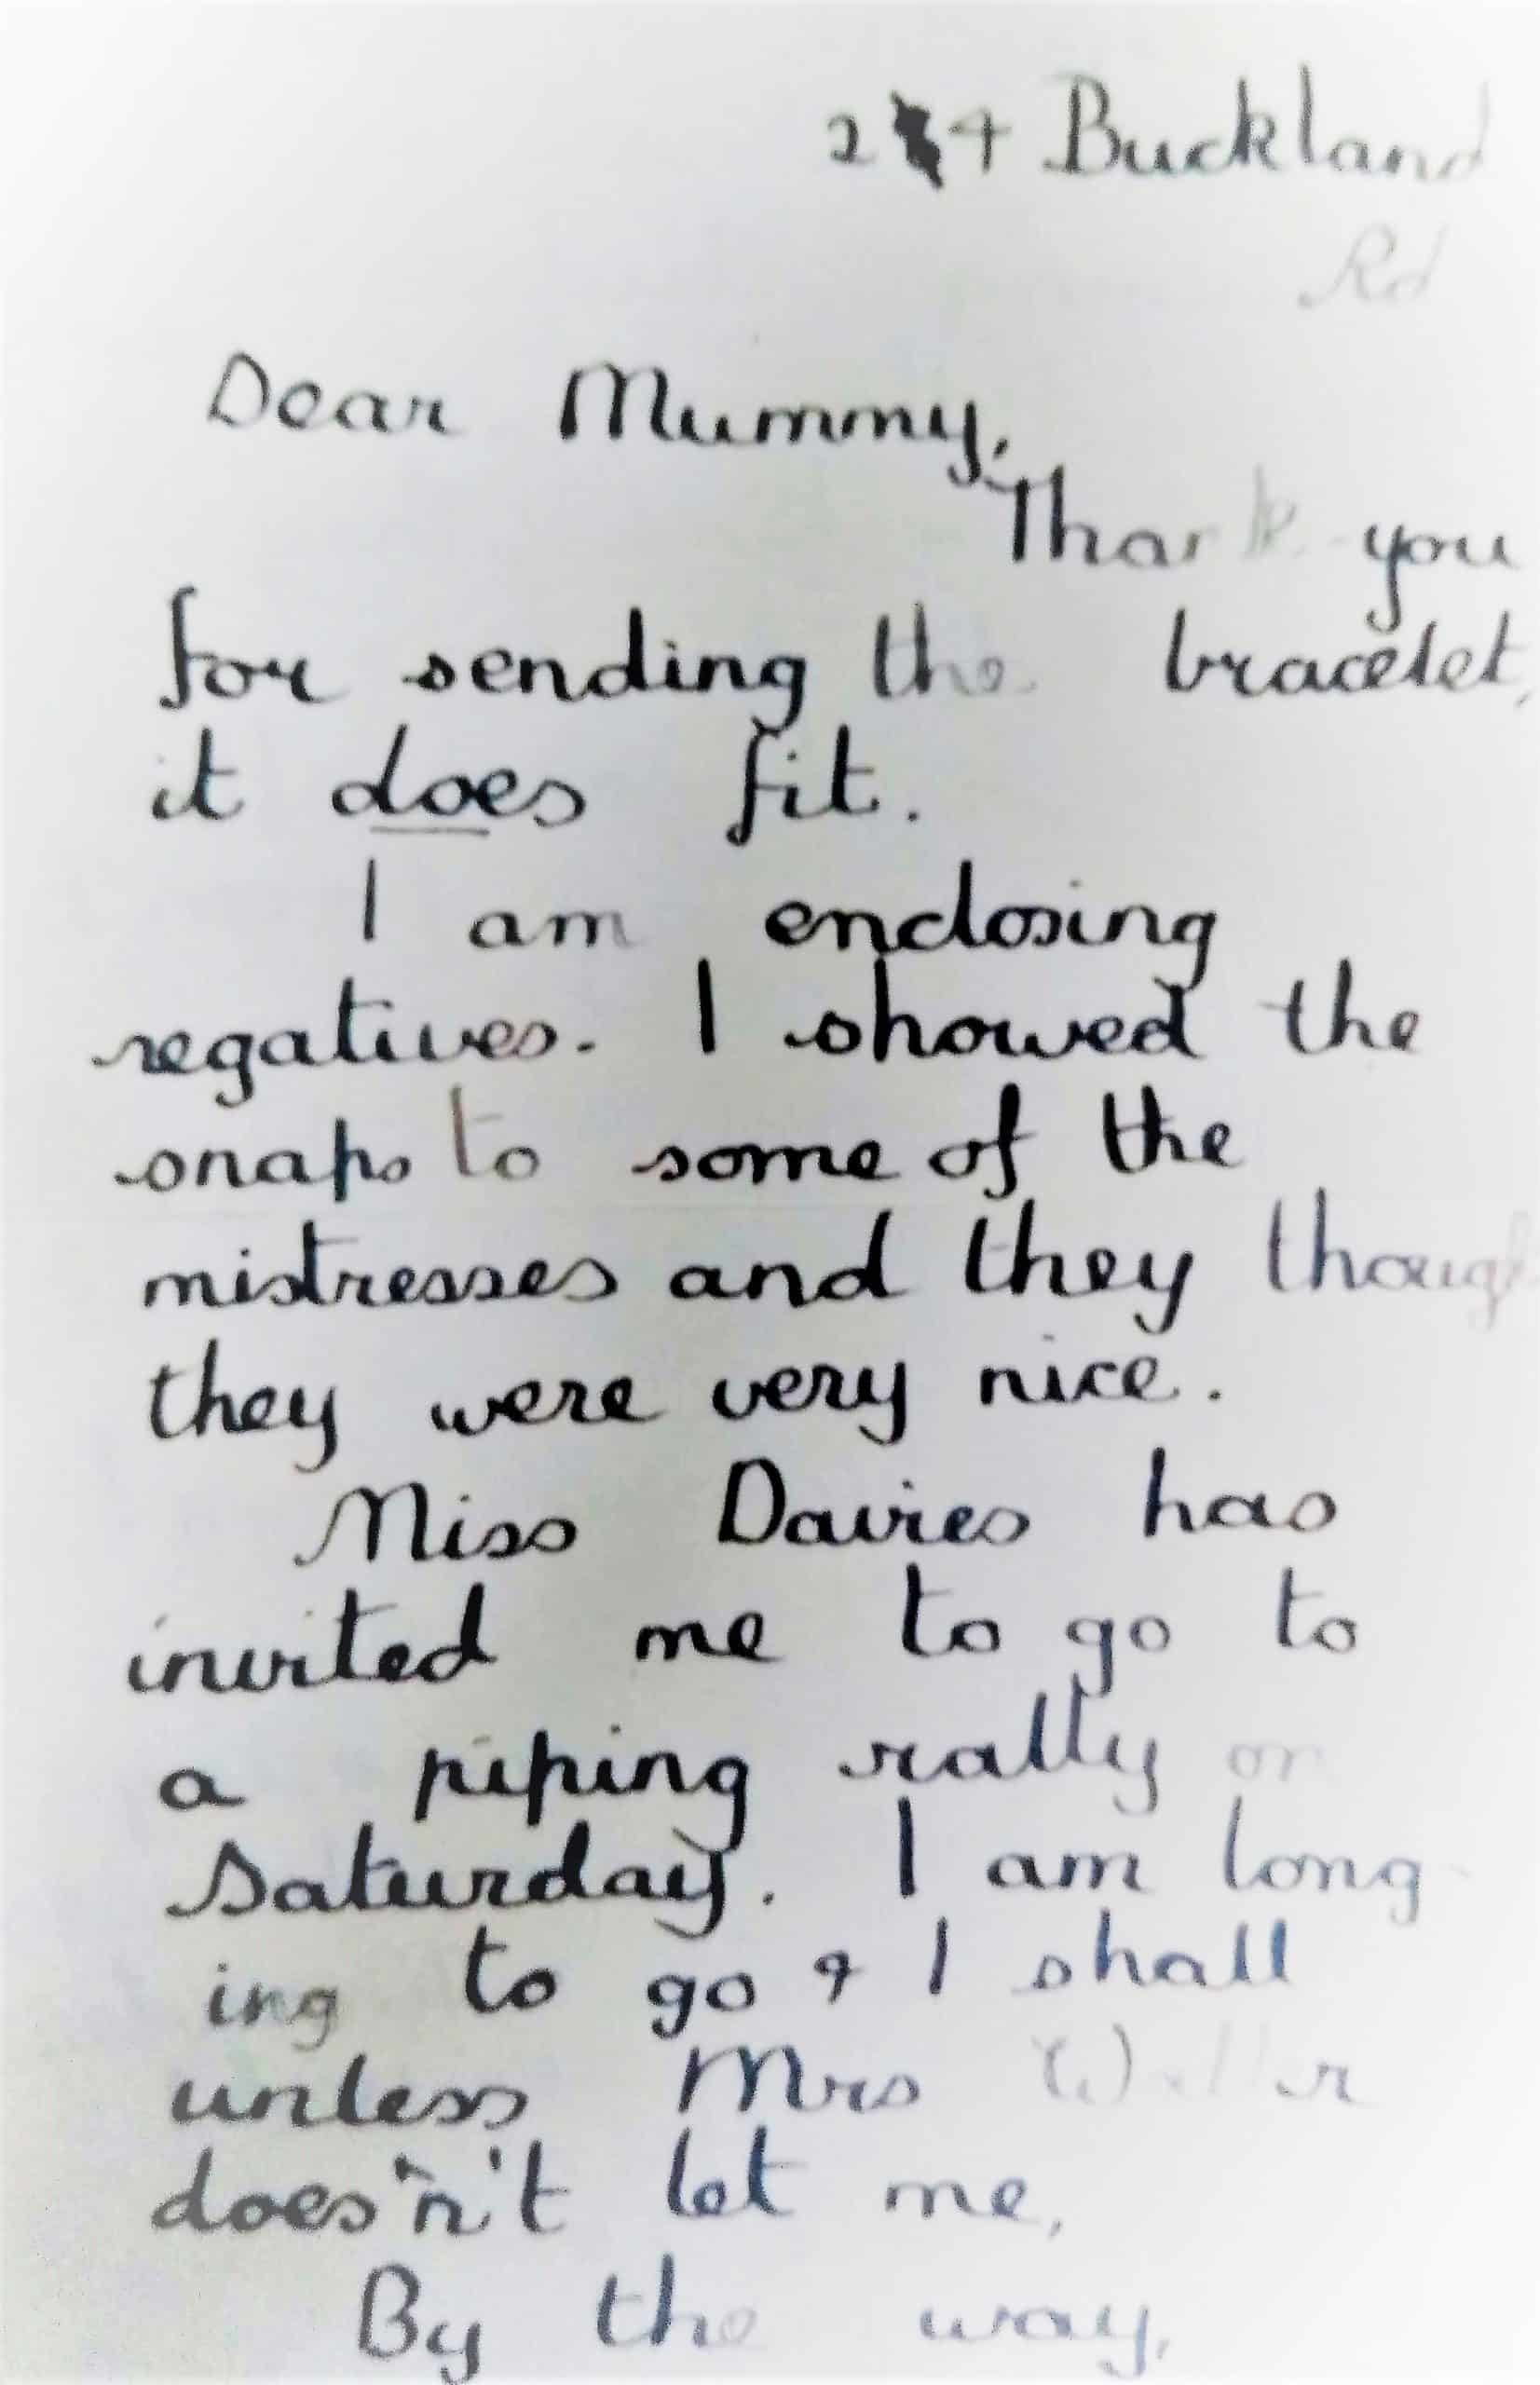 24 Buckland
Rd
Dear Mummy,
Thank you
for sending the bracelet,
it does fit.
I am enclosing
negatives. I showed the
snaps to some of the
mistresses and they though
they were very nice.
Miss Davies has
invited me to go to
a piping rally on
Saturday. I am long-
ing to go & I shall
unless Mrs
does'n't let me,
By the way,